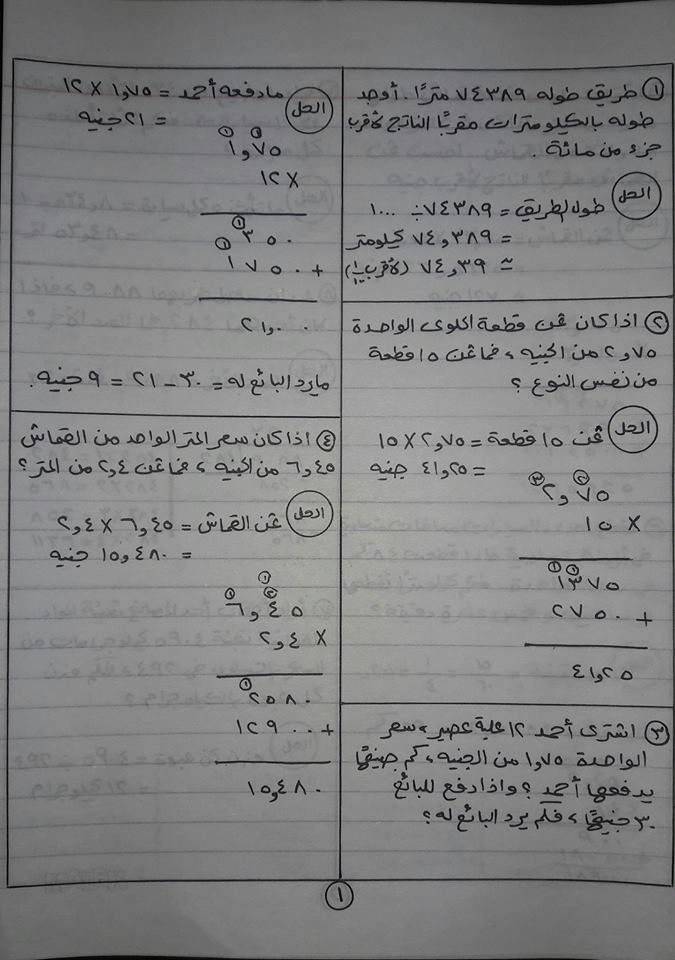 ① طريق طوله ٧٤٣٨٩ مترًا. أوجد
طوله بالكيلومترات مقربًا الناتج لأقرب
جزء من مائة.
الحل
طول الطريق = ٧٤٣٨٩ ÷ ١٠٠٠
= ٧٤,٣٨٩ كيلومتر
≃ ٧٤,٣٩ (لأقرب ١/١٠٠)
② اذا كان ثمن قطعة الحلوى الواحدة
٢,٧٥ من الجنيه، فما ثمن ١٥ قطعة
من نفس النوع؟
الحل
ثمن ١٥ قطعة = ٢,٧٥ × ١٥
= ٤١,٢٥ جنيه
③ ②
٢,٧٥
١٥ ×
① ①
١٣٧٥
٢٧٥٠ +
٤١,٢٥
③ اشترى أحمد ١٢ علبة عصير، سعر
الواحدة ١,٧٥ من الجنيه، كم جنيهًا
يدفعها أحمد؟ واذا دفع للبائع
٣٠ جنيهًا، فلم يرد البائع له؟
الحل
ما دفعه أحمد = ١,٧٥ × ١٢
= ٢١ جنيه
① ①
١,٧٥
١٢ ×
①
٣٥٠
①
١٧٥٠ +
٢١,٠٠
ما يرد البائع له = ٣٠ - ٢١ = ٩ جنيه.
④ اذا كان سعر المتر الواحد من القماش
٦,٤٥ من الجنيه، فما ثمن ٢,٤ من المتر؟
الحل
ثمن القماش = ٦,٤٥ × ٢,٤
= ١٥,٤٨٠ جنيه
①
① ②
٦,٤٥
٢,٤ ×
①
٢٥٨٠
١٢٩٠٠ +
١٥,٤٨٠
①